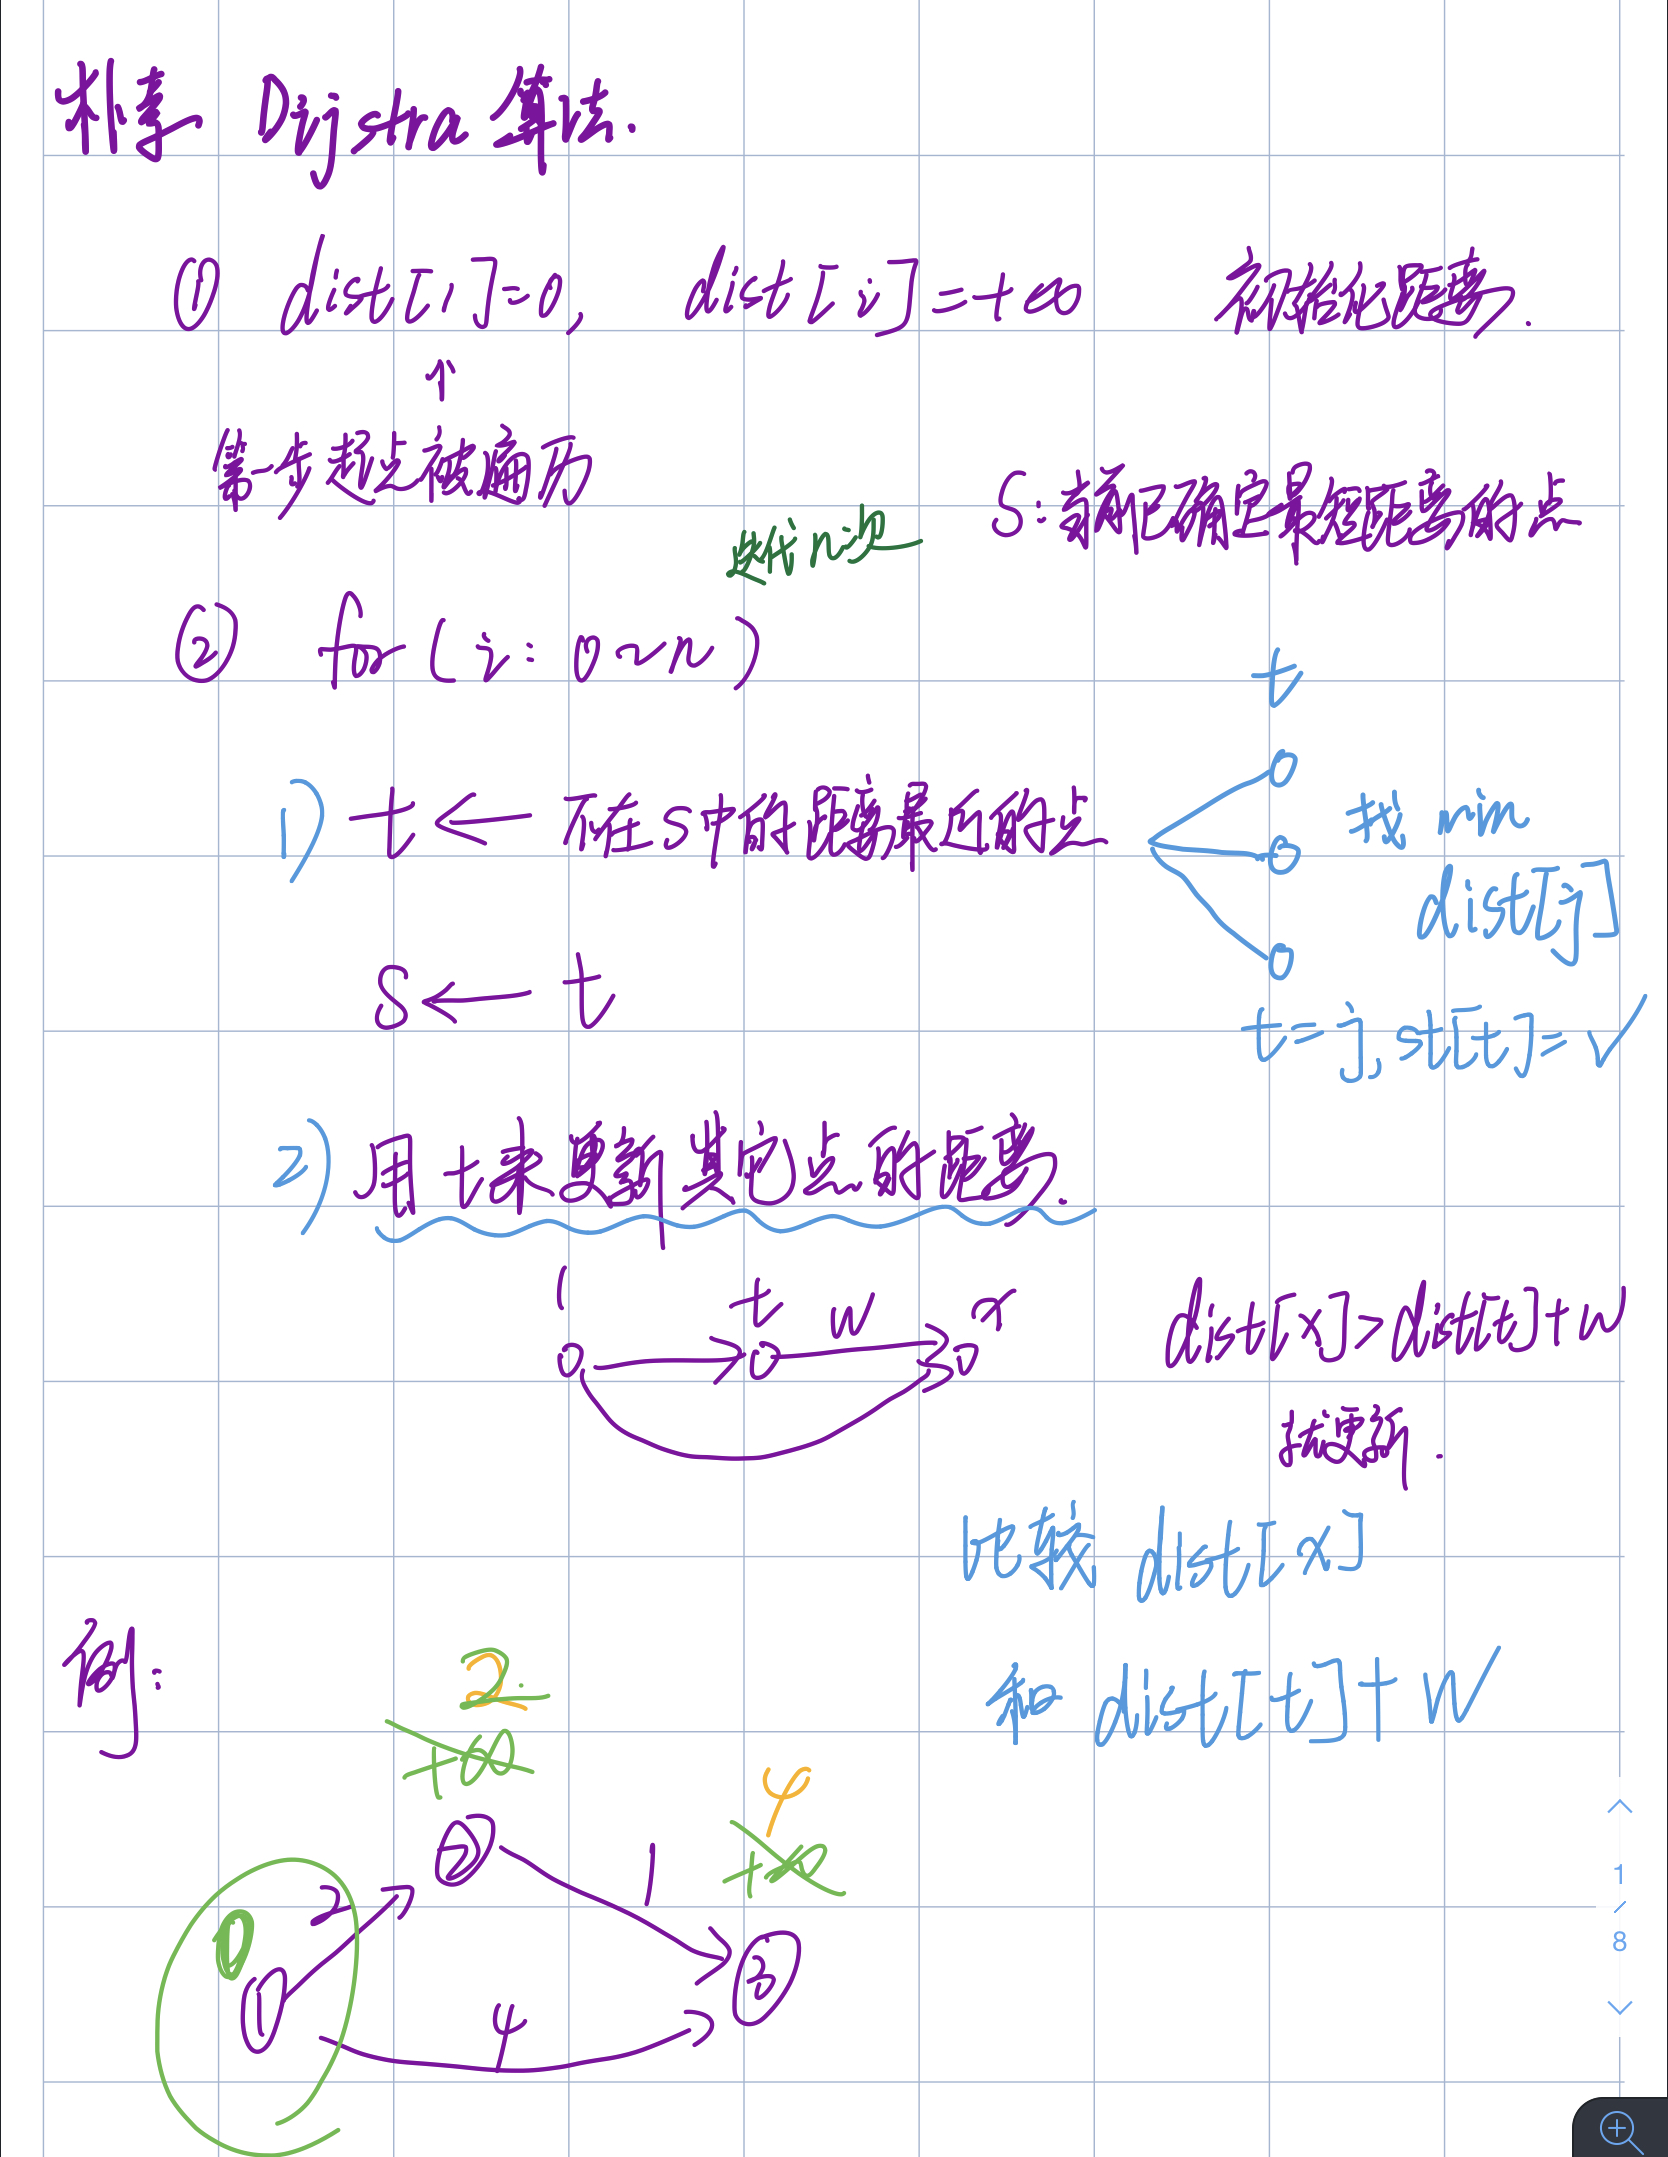 朴素 Dijstra 算法.
① dist[1]=0, dist[i]=+∞ 初始化距离.
↑
第一步起点被遍历
S:当前已确定最短距离的点
迭代n次
② for(i:0~n)
t
1) t ← 不在S中的距离最近的点
找 min
dist[j]
S ← t
t=j, st[t]=√
2) 用t来更新其它点的距离.
1 t w x
dist[x]>dist[t]+w
就更新.
比较 dist[x]
和 dist[t]+w
例:
2
+∞
4
+∞
② 1
2
0
① ③
4
1
8